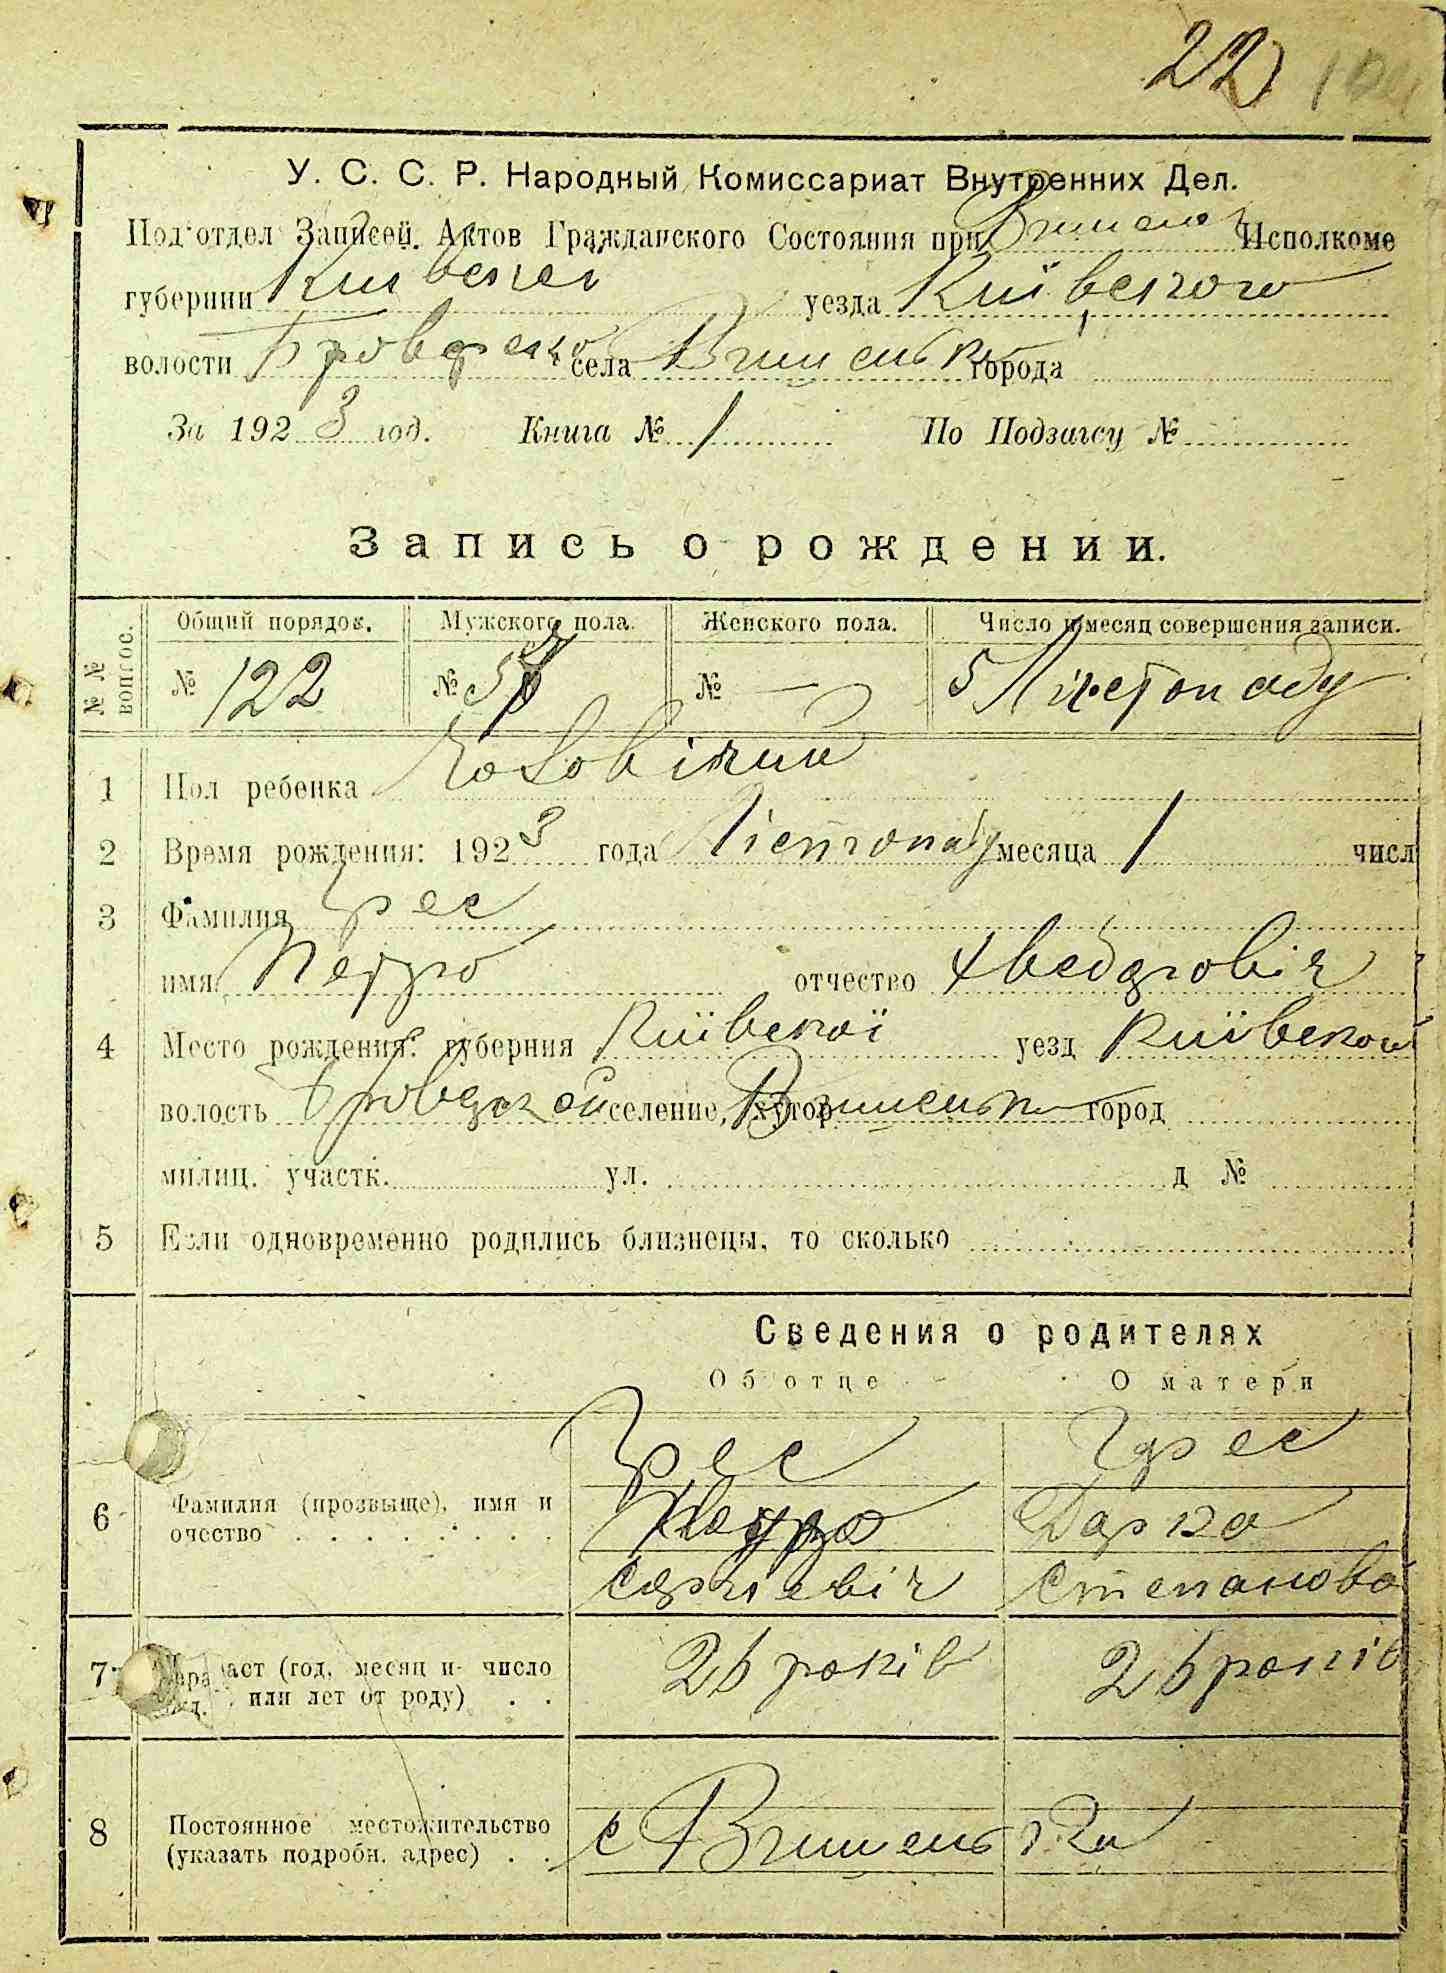 22
У. С. С. Р. Народный Комиссариат Внутренних Дел.
Под'отдел Записей Актов Гражданского Состояния при Вишень Исполкоме
губернии Київской уезда Київского
волости Броварско села Вишеньки города
За 1923 год. Книга № 1 По Подзагсу №
Запись о рождении.
№№ вопрос. Общий порядок. Мужского пола. Женского пола. Число и месяц совершения записи.
№ 122 № 57 № — 5 Листопаду
1 Пол ребенка Чоловічий
2 Время рождения: 1923 года Лістопаду месяца 1 числ
3 Фамилия Грес
имя Петро отчество
4 Место рождения: губерния Київскої уезд Київской
волость Броварской селение, хутор Вишеньки город
милиц. участк. ул. д №
5 Если одновременно родились близнецы, то сколько
Сведения о родителях
Об отце О матери
Грес Грес
6 Фамилия (прозвыще), имя и Дарка
очество Сергіевіч Степанова
7 аст (год, месяц и число 26 років 26 років
или лет от роду)
8 Постоянное местожительство
(указать подробн. адрес) с Вишеньки